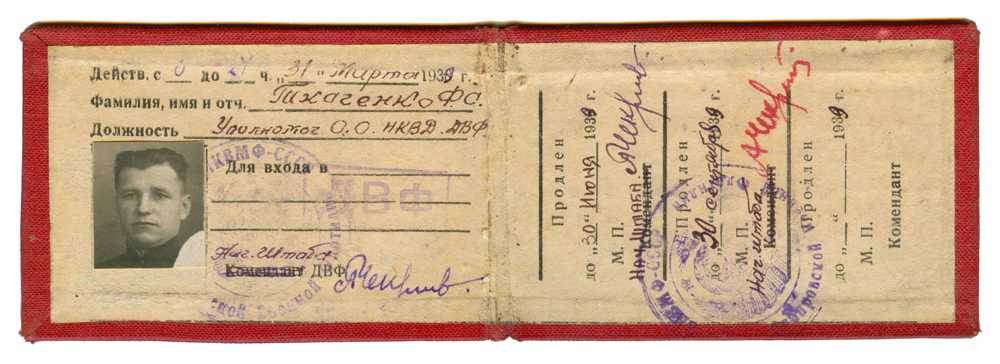 Действ. с 0 до 24 ч. „31" Марта 1939 г.
Фамилия, имя и отч. Ткаченко Ф С.
Должность Уполномоч О.О. НКВД ДВФ
Для входа в
ДВФ
Нач. Штаба
Комендант ДВФ
КВМФ-СССР
Продлен
до „30" Июня 1939 г.
М. П.
Нач Штаба
Комендант
Продлен
до „30" сентября 1939 г.
М. П.
Нач. штаба
Комендант
Продлен
до „ " 1939 г.
М. П.
Комендант
КВМФ-СССР